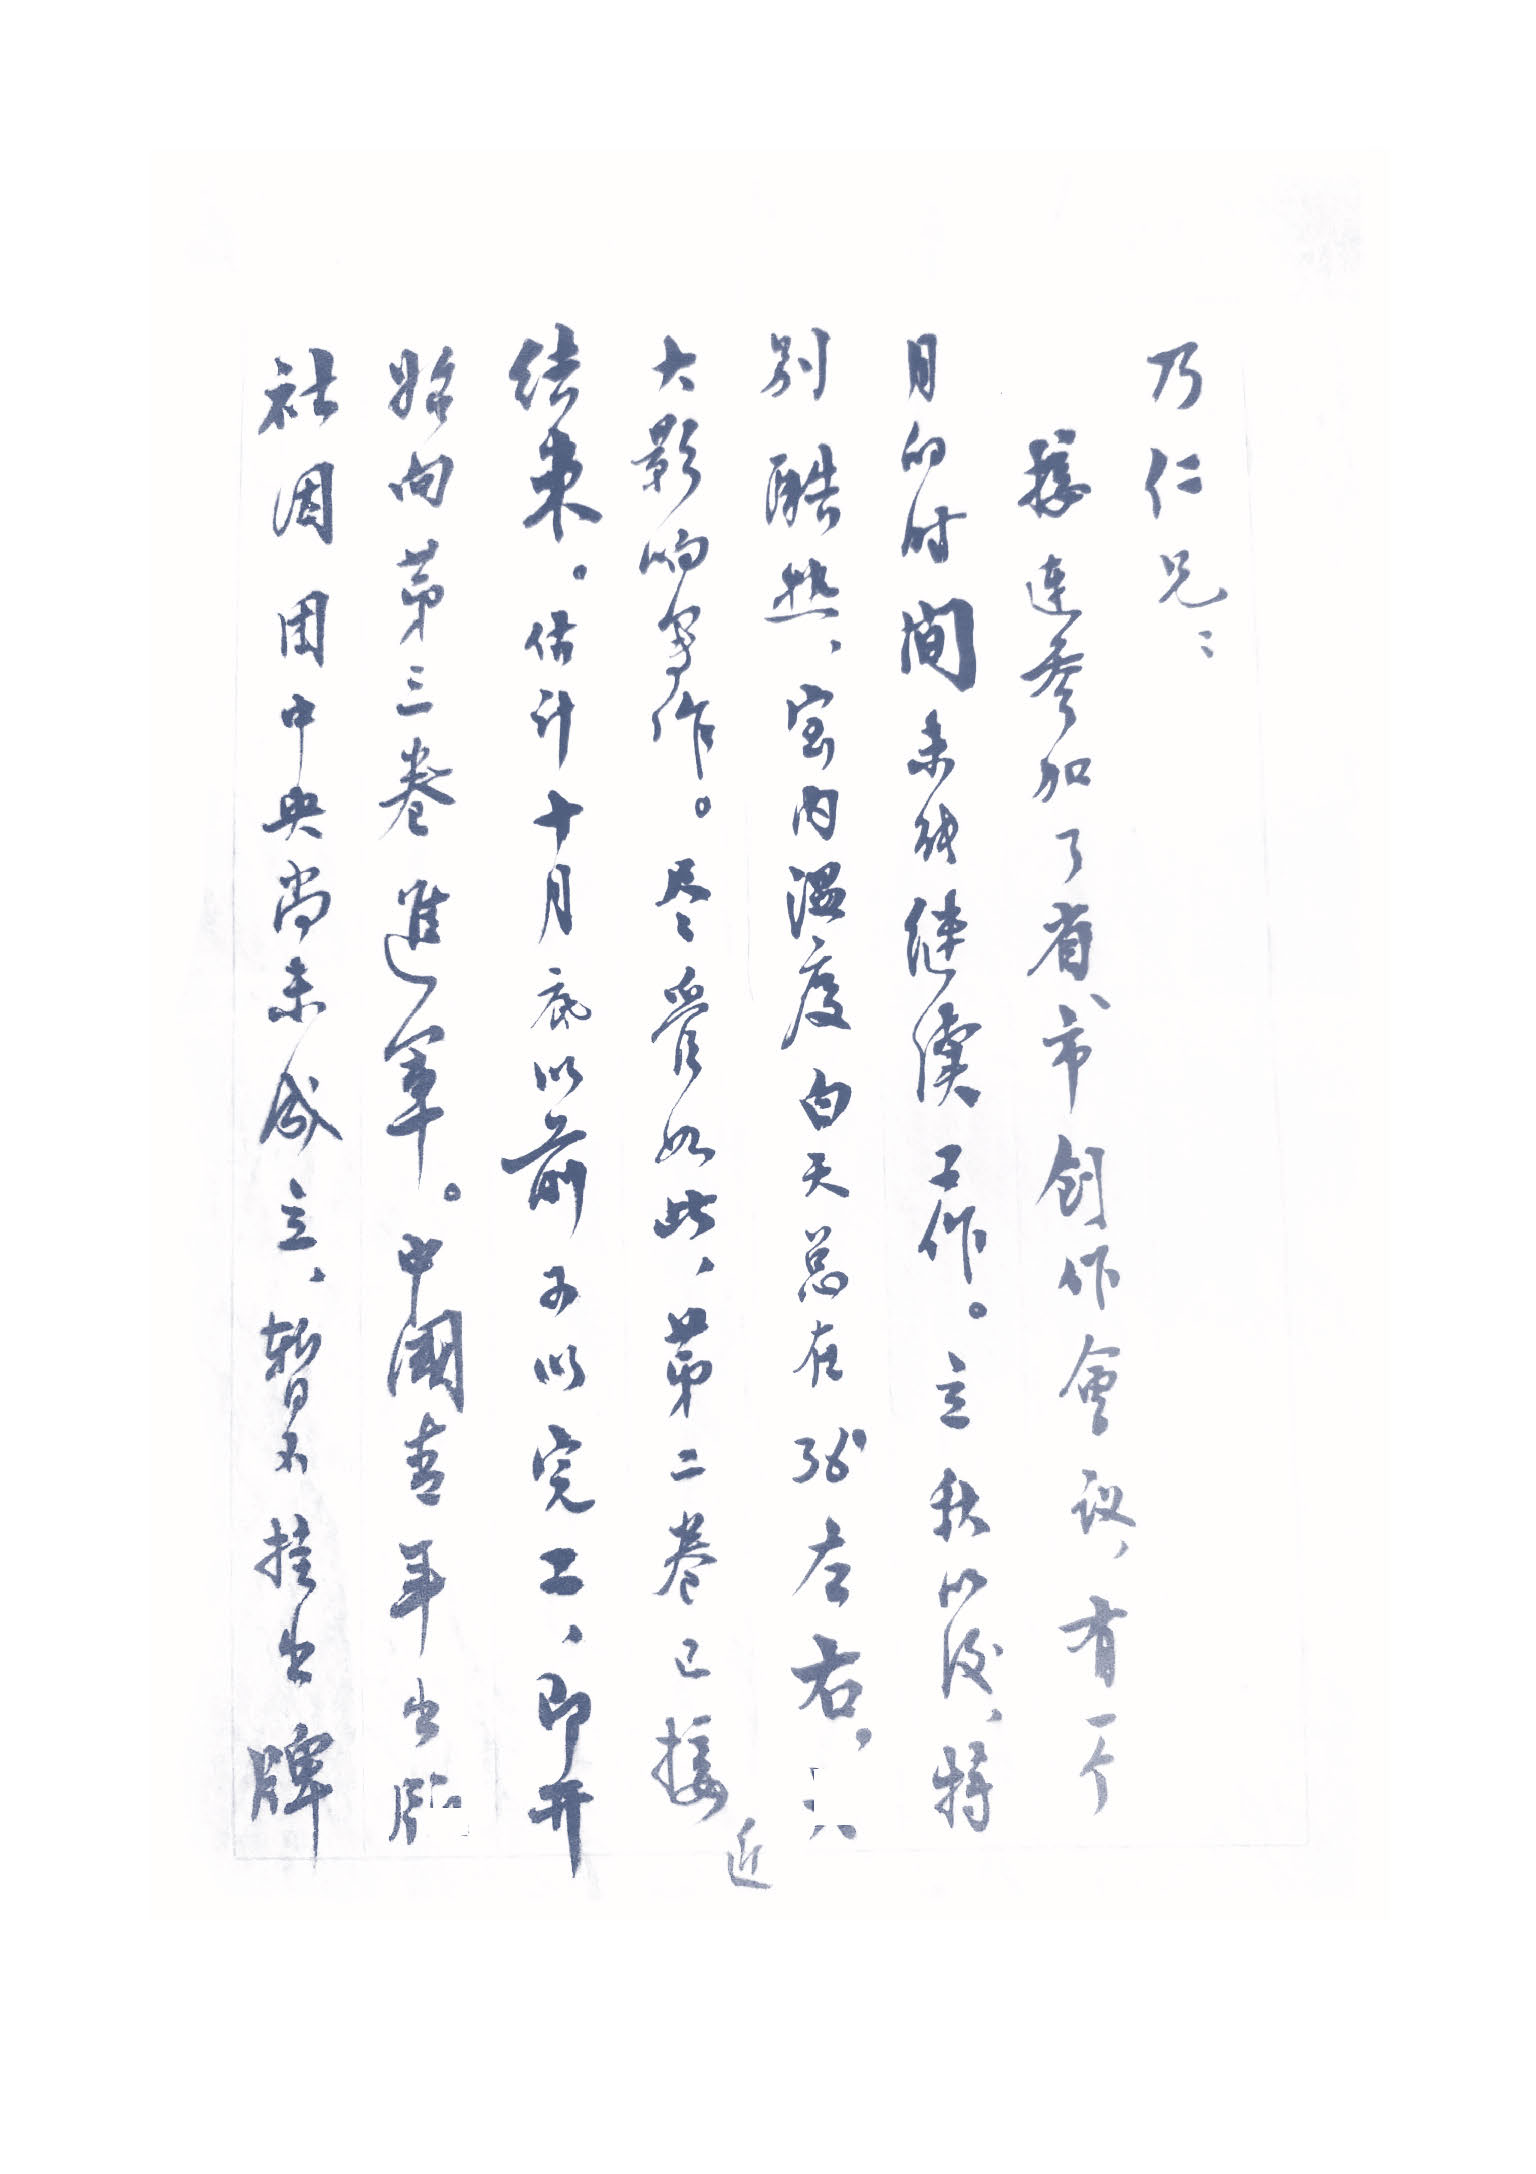 乃仁兄：
接连参加了省市创作會议，有一个
月的时间未能继续工作。立秋以后，特
别酷热，室内温度白天总在36°左右，
大影响写作。尽管如此，第二卷已接近
结束。估计十月底以前可以完工，即开
始向第三卷進军。中國青年出版
社因团中央尚未成立，暂不挂出牌